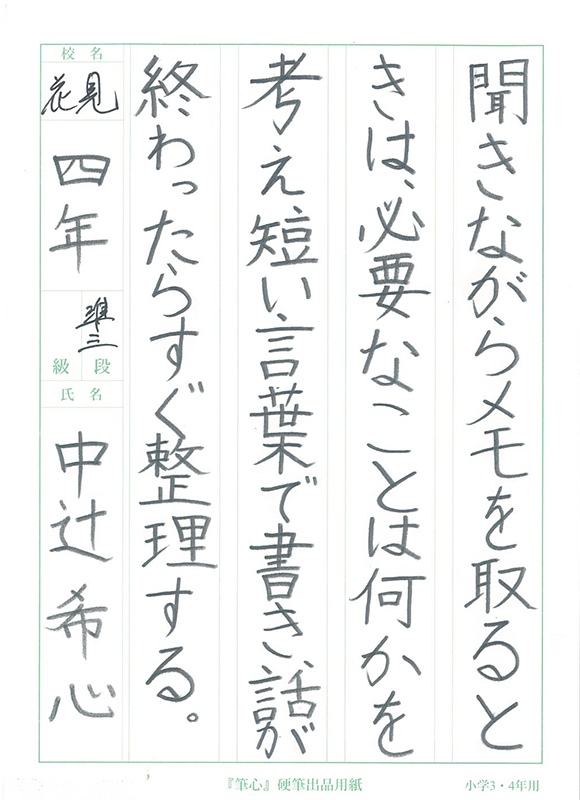 聞きながらメモを取ると
きは、必要なことは何かを
考え、短い言葉で書き、話が
終わったらすぐ整理する。
校名
花見
四年
準三
級段
氏名
中辻希心
『筆心』硬筆出品用紙
小学3・4年用